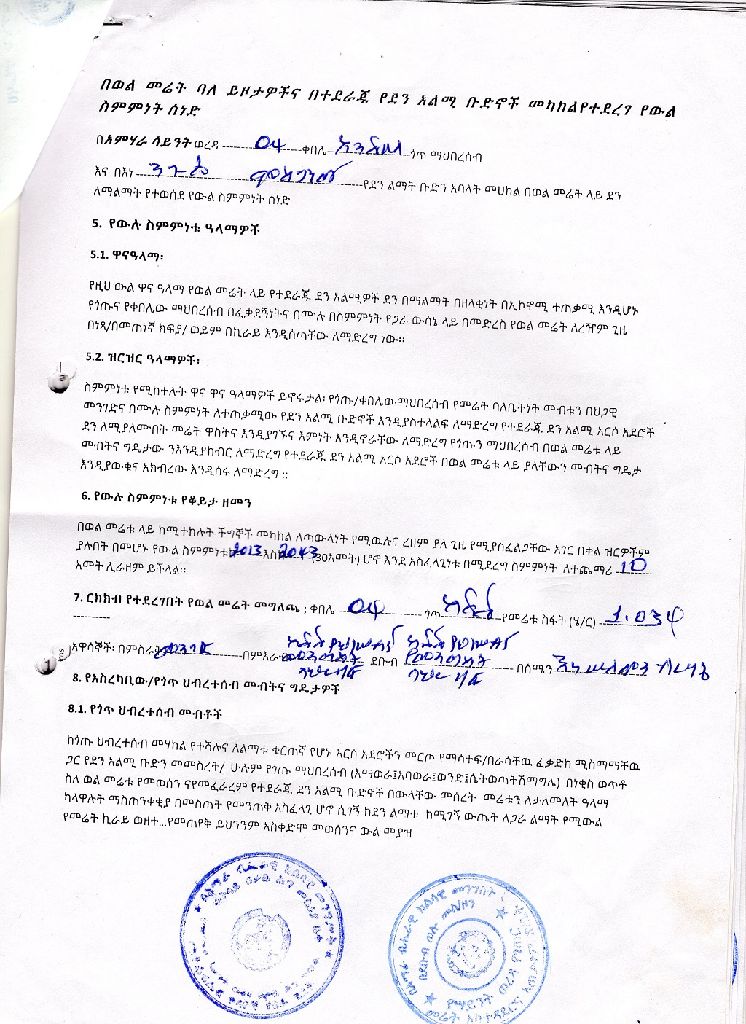 በወል መሬት ባለ ይዞታዎችና በተደራጁ የደን አልሚ ቡድኖች መካከልየተደረገ የውል
ስምምነት ሰነድ
በአምሃራ ሳይንት ወረዳ 04 ቀበሌ ጎጥ ማህበረሰብ
እና በእነ የደን ልማት ቡድን አባላት መሀከል በወል መሬት ላይ ደን
ለማልማት የተወሰደ የውል ስምምነት ሰነድ
5. የውሉ ስምምነቱ ዓላማዎች
5.1. ዋናዓላማ፡
የዚህ ውል ዋና ዓላማ የወል መሬት ላይ የተደራጁ ደን አልሚዎች ደን በማልማት በዘላቂነት በኢኮኖሚ ተጠቃሚ እንዲሆኑ
የጎጡና የቀበሌው መህበረሰብ በፈቃደኝነትና በሙሉ በስምምነት የጋራ ውሳኔ ላይ በመድረስ የወል መሬት ለረዥም ጊዜ
በነጻ/በመጠነኛ ክፍያ/ ወይም በኪራይ እንዲሰጣቸው ለማድረግ ነው።
5.2. ዝርዝር ዓላማዎች፡
ስምምነቱ የሚከተሉት ዋና ዋና ዓላማዎች ይኖሩታል፡ የጎጡ/ቀበሌው ማህበረሰብ የመሬት ባለቤተነት መብቱን በህጋዊ
መንገድና በሙሉ ስምምነት ለተጠቃሚው የደን አልሚ ቡድኖች እንዲያስተላልፍ ለማድረግ የተደራጁ ደን አልሚ አርሶ አደሮች
ደን ለሚያለሙበት መሬት ዋስትና እንዲያገኙና እምነት እንዲኖራቸው ለማድረግ የጎጡን ማህበረሰብ በወል መሬቱ ላይ
መብትና ግዴታው ንእንዲያከብር ለማድረግ የተደራጁ ደን አልሚ አርሶ አደሮች በወል መሬቱ ላይ ያላቸውን መብትና ግዴታ
እንዲያውቁና አክብረው እንዲሰሩ ለማድረግ ።
6. የውሉ ስምምነቱ የቆይታ ዘመን
በወል መሬቱ ላይ ከሚተከሉት ችግኞች መካከል ለጣውላነት የሚዉሉና ረዘም ያለ ጊዜ የሚያስፈልጋቸው አገር በቀል ዝርዎችም
ያሉበት በመሆኑ የውል ስምምነቱ 2013 እስከ 2043 /30አመት/ ሆኖ እንደ አስፈላጊነቱ በሚደረግ ስምምነት ለተጨማሪ 10
አመት ሊራዘም ይችላል።
7. ርክክብ የተደረገበት የወል መሬት መግለጫ ; ቀበሌ 04 ጎጥ የመሬቱ ስፋት (ሄ/ር) 1.034
አዋሳኞች፡ በምስራቅ በምእራብ ደቡብ በሰሜን
8. የአስረካቢው/የጎጥ ህብረተሰብ መብትና ግዴታዎች
8.1. የጎጥ ህብረተሰብ መብቶች
ከጎጡ ህብረተሰብ መሃከል የተሻሉና ለልማቱ ቁርጠኛ የሆኑ አርሶ አደሮችን መርጦ የመሳተፍ/በራሳቸዉ ፈቃድከ ሚስማማቸዉ
ጋር የደን አልሚ ቡድን መመስረት/ ሁሉም የጎጡ መህበረሰብ በነቂስ ወጥቶ
ስለ ወል መሬቱ የመወሰን የተደራጁ ደን አልሚ ቡድኖች በውላቸው መሰረት መሬቱን ለታለመለት ዓላማ
ካላዋሉት ማስጠንቀቂያ በመስጠት የመንጠቅ አስፈላጊ ሆኖ ሲገኝ ከደን ልማቱ ከሚገኝ ውጤት ለጋራ ልማት የሚውል
የመሬት ኪራይ ወዘተ...የመጠየቅ ይህንንም አስቀድሞ መወሰንና ውል መያዝ